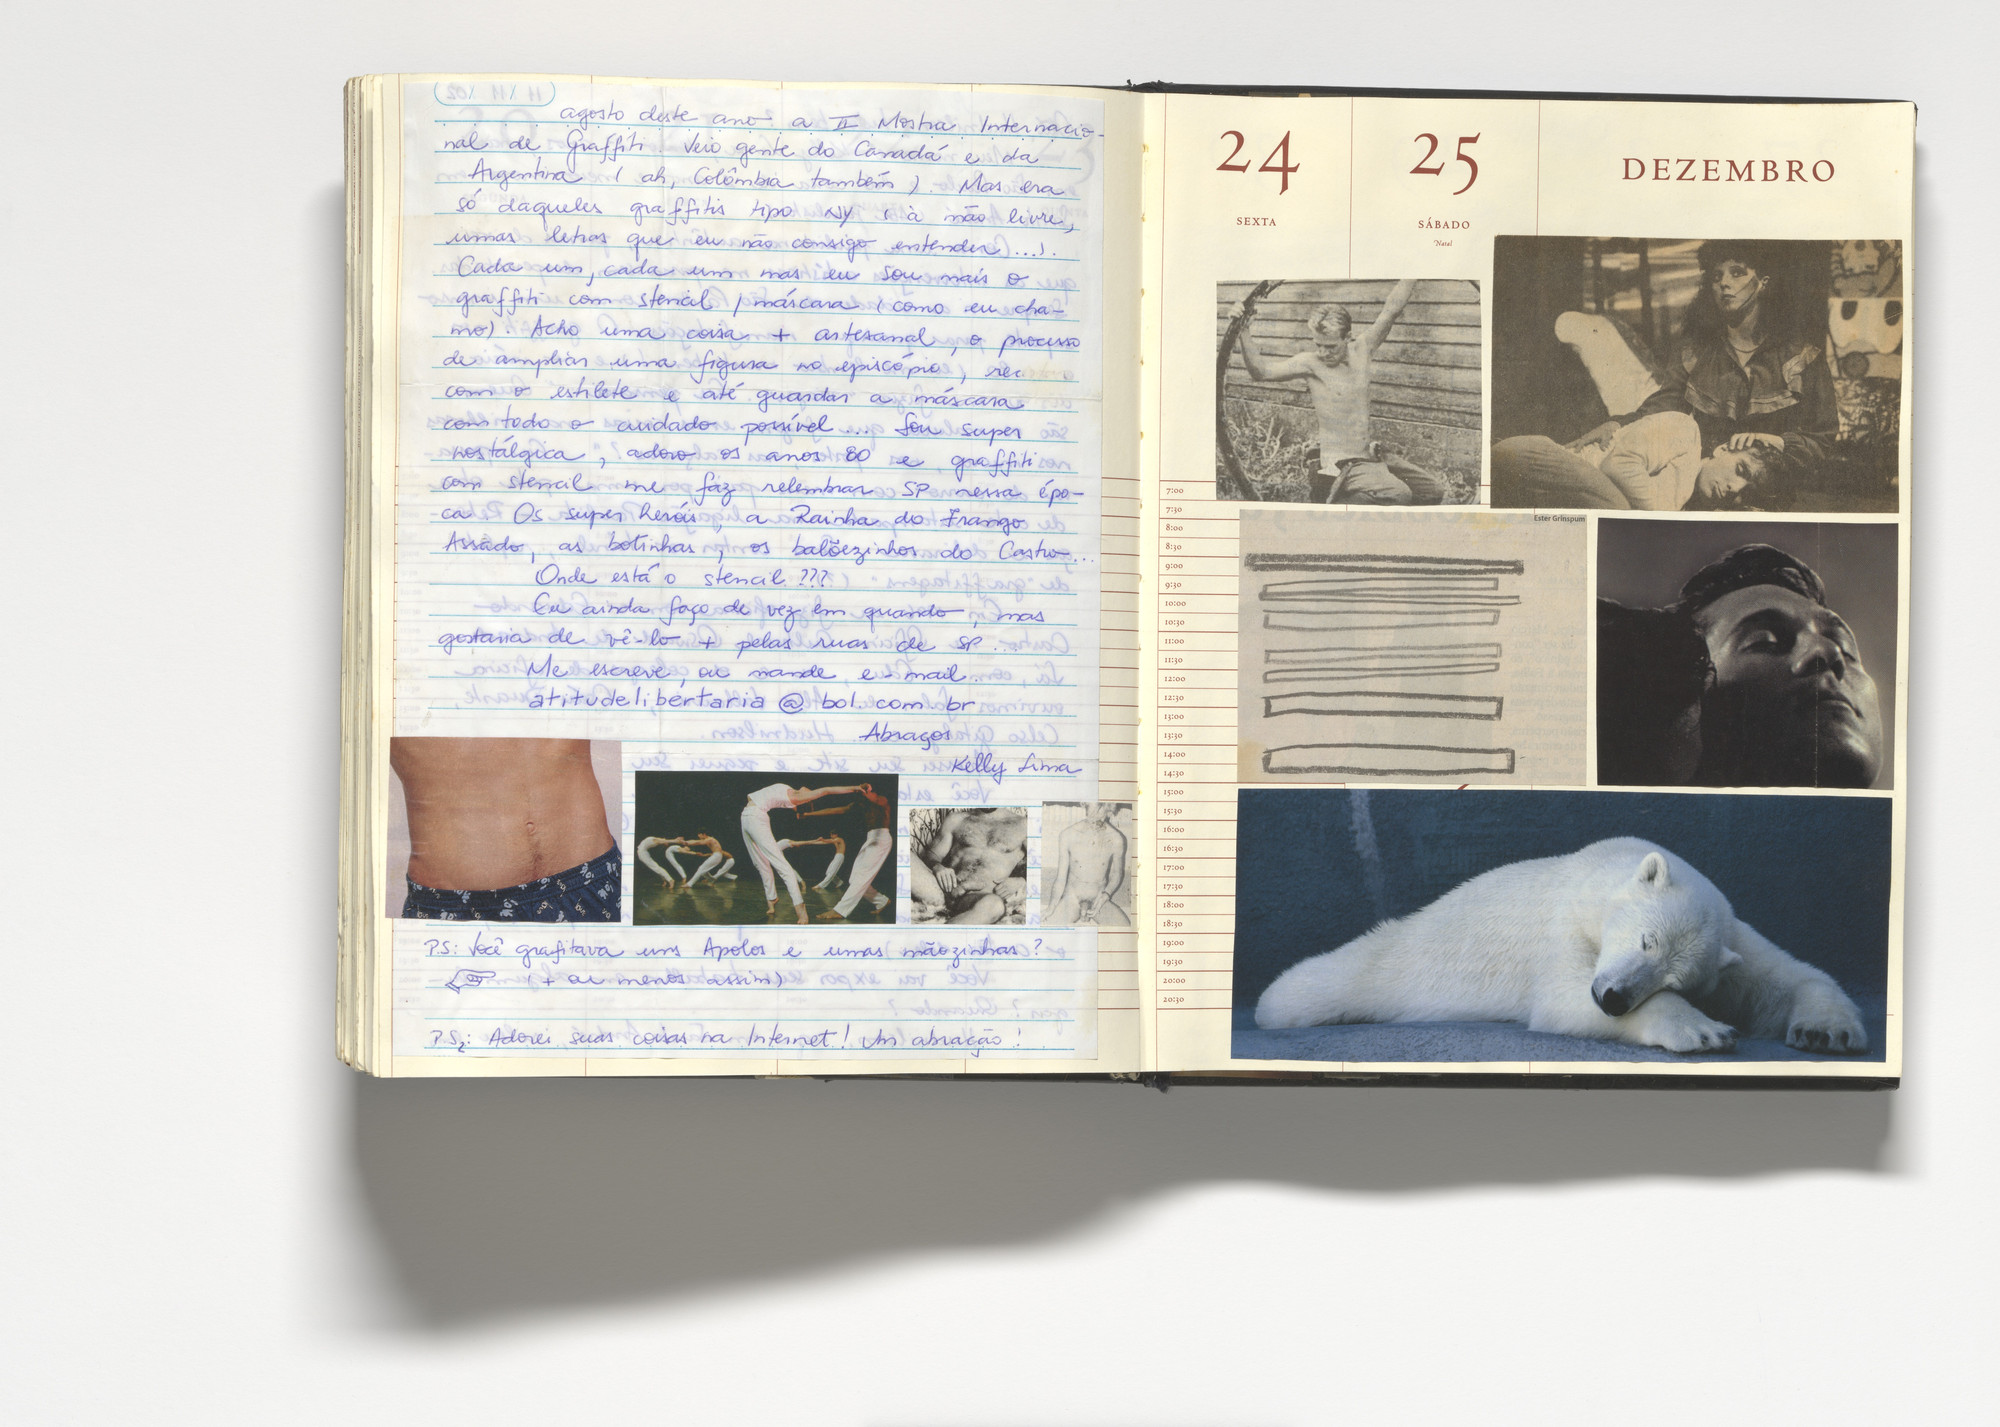 agosto deste ano a II Mostra Internacio-
nal de Graffiti. Veio gente do Canadá e da
Argentina (ah, Colômbia também). Mas era
só daqueles graffitis tipo NY (à mão livre,
umas letras que eu não consigo entender...).
Cada um, cada um mas eu sou mais o
graffiti com stencil/máscara (como eu cha-
mo). Acho uma coisa + artesanal, o processo
de ampliar uma figura no episcópio,
com o estilete e até guardar a máscara
com todo o cuidado possível... Sou super
nostálgica, adoro os anos 80 e graffiti
com stencil me faz relembrar SP nessa épo-
-ca. Os super heróis, a Rainha do Frango
Assado, as botinhas, os balõezinhos do Castro...
Onde está o stencil???
Eu ainda faço de vez em quando, mas
gostaria de vê-lo + pelas ruas de SP.
Me escreve, ou mande e-mail.
atitudelibertaria@bol.com.br
Abraços
Kelly Lima
P.S: Você grafitava uns Apolos e umas mãozinhas?
(+ ou menos assim)
P.S2: Adorei suas coisas na Internet! Um abração!
24
SEXTA
25
SÁBADO
Natal
DEZEMBRO
Ester Grinspum
7:00
7:30
8:00
8:30
9:00
9:30
10:00
10:30
11:00
11:30
12:00
12:30
13:00
13:30
14:00
14:30
15:00
15:30
16:00
16:30
17:00
17:30
18:00
18:30
19:00
19:30
20:00
20:30